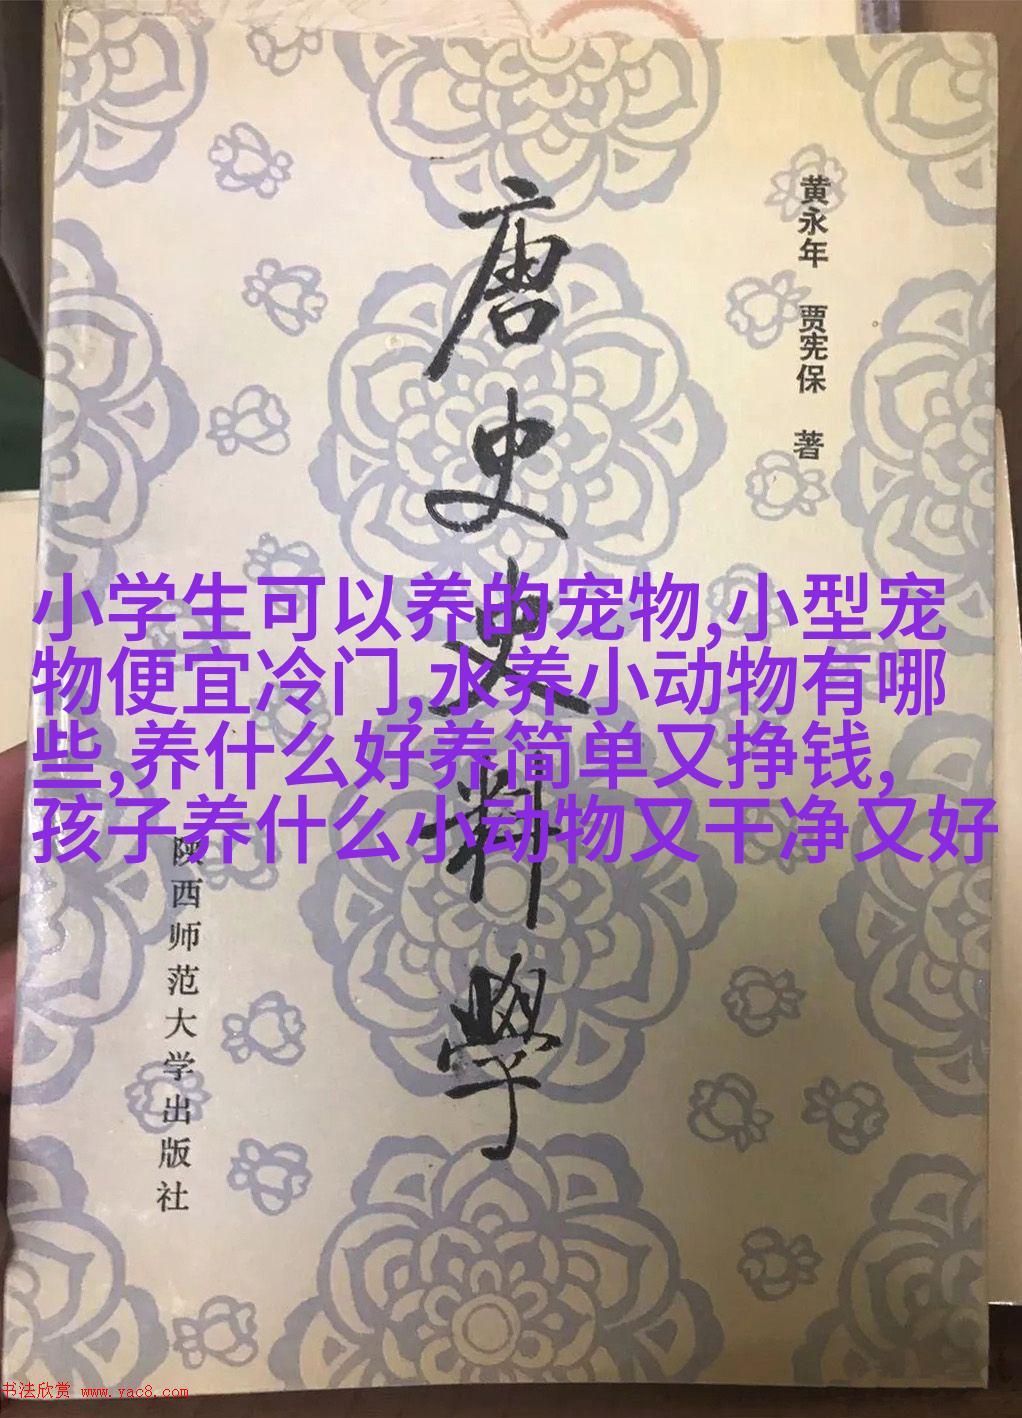 黄永年 贾宪保 著
唐史史料学
小学生可以养的宠物,小型宠
物便宜冷门,水养小动物有哪
些,养什么好养简单又挣钱,
孩子养什么小动物又干净又好
陕西师范大学出版社
书法欣赏 www.yac8.com